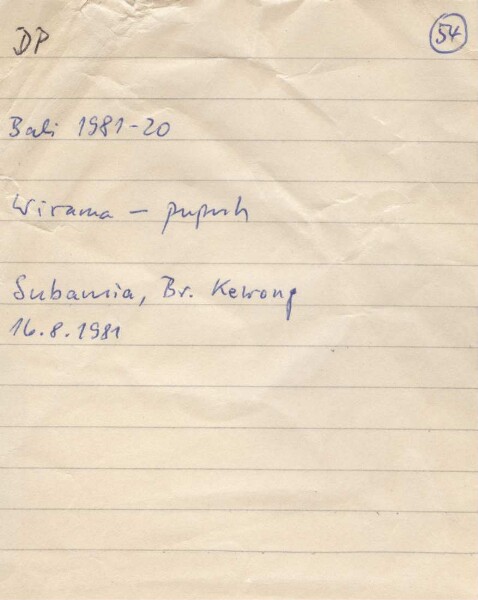 DP
54
Bali 1981-20
Wirama - pupuh
Subamia, Br. Kewong
16.8.1981